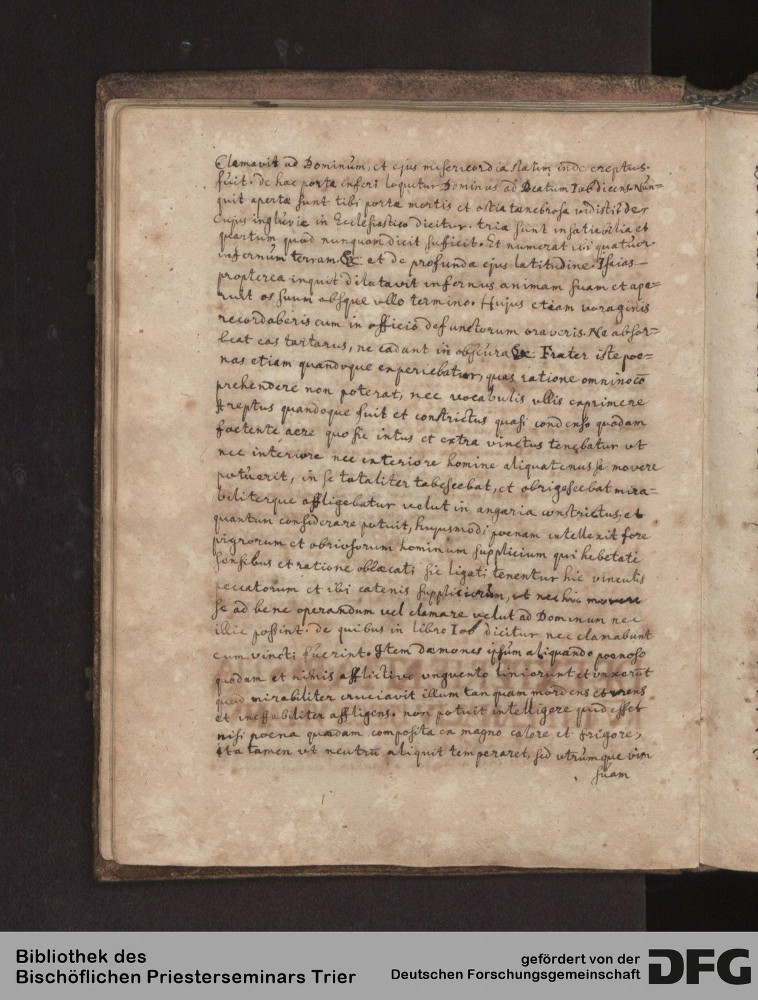 Clamavit ad Dominum, et ejus misericordia statim inde ereptus
fuit. de hac porta inferi loquitur Dominus ad Beatum Iob dicens Nun=
quit apertæ sunt tibi portæ mortis et ostia tænebrosa vidisti? de
cujus ingluvie in Ecclesiastico dicitur. tria sunt insatiabilia et
quartum quod nunquam dicit sufficit. Et numerat ibi quatuor
infernum terram &c et de profunda ejus latitudine. Isaias
propterea inquit dilatavit infernus animam suam et ape=
ruit os suum absque ullo termino. Hujus etiam voraginis
recordaberis cum in officio defunctorum oraveris. Ne absor=
beat eas tartarus, ne cadant in obscura &c. Frater iste poe=
nas etiam quandoque experiebatur, quas ratione omnino cō
prehendere non poterat, nec vocabulis ullis exprimere
Areptus quandoque fuit et constrictus quasi condenso quodam
foetente aere quo sic intus et extra vinctus tenebatur ut
nec interiore nec exteriore homine aliquatenus se movere
potuerit, in se totaliter tabescebat, et obrigescebat mira=
biliterque affligebatur velut in angaria constrictus, et
quantum considerare potuit, hujusmodi poenam intellexit fore
pigrorum et obriosorum hominum supplicium qui hebetati
sensibus et ratione oblæcati sic ligati tenentur hic vinculis
peccatorum et ibi catenis suppliciorum, ut nec hic movere
se ad bene operandum vel clamare velut ad Dominum nec
illic possint. de quibus in libro Iob dicitur nec clamabunt
cum vincti fuerint. Item dæmones ipsum aliquando poenoso
quodam et nimis afflictivo unguento liniorunt et unxerūt
quod mirabiliter cruciavit illum tanquam mordens et urens
et ineffabiliter affligens. non potuit intelligere quid esset
nisi poena quædam composita ex magno calore et frigore,
ita tamen ut neutrū aliquit temperaret, sed utrumque vim
suam
Bibliothek des
Bischöflichen Priesterseminars Trier
gefördert von der
Deutschen Forschungsgemeinschaft
DFG